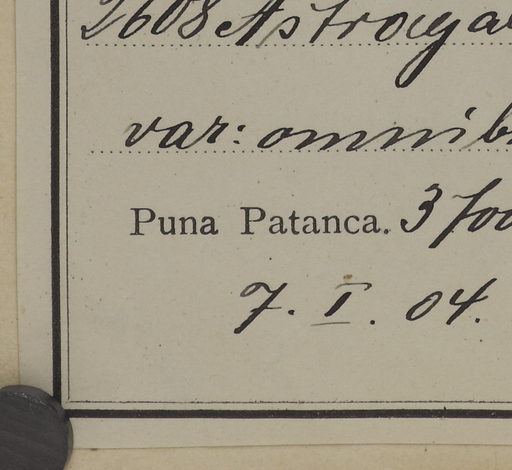 2608 Astraga
var: omnib
Puna Patanca. 3700
7. I. 04.